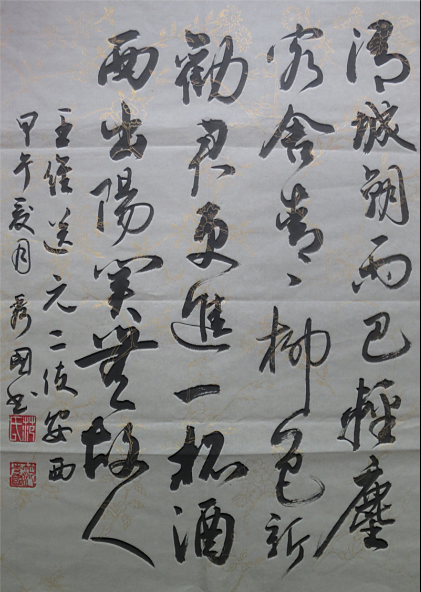 渭城朝雨邑輕塵
客舍青々柳色新
勸君更進一杯酒
西出陽關無故人
王維送元二使安西
甲午夏月國书